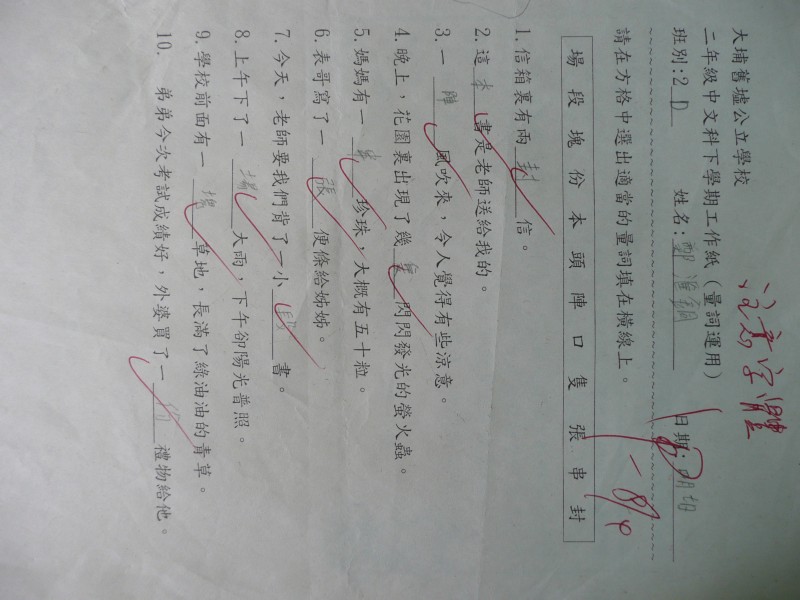 大埔舊墟公立學校
二年級中文科下學期工作紙（量詞運用）
注意字體
班別:2D 姓名: 日期:
請在方格中選出適當的量詞填在橫線上。
場 段 塊 份 本 頭 陣 口 隻 張 串 封
1. 信箱裏有兩封信。
2. 這本書是老師送給我的。
3. 一陣風吹來，令人覺得有些涼意。
4. 晚上，花園裏出現了幾隻閃閃發光的螢火蟲。
5. 媽媽有一串珍珠，大概有五十粒。
6. 表哥寫了一張便條給姊姊。
7. 今天，老師要我們背了一小段書。
8. 上午下了一場大雨，下午卻陽光普照。
9. 學校前面有一塊草地，長滿了綠油油的青草。
10. 弟弟今次考試成績好，外婆買了一份禮物給他。